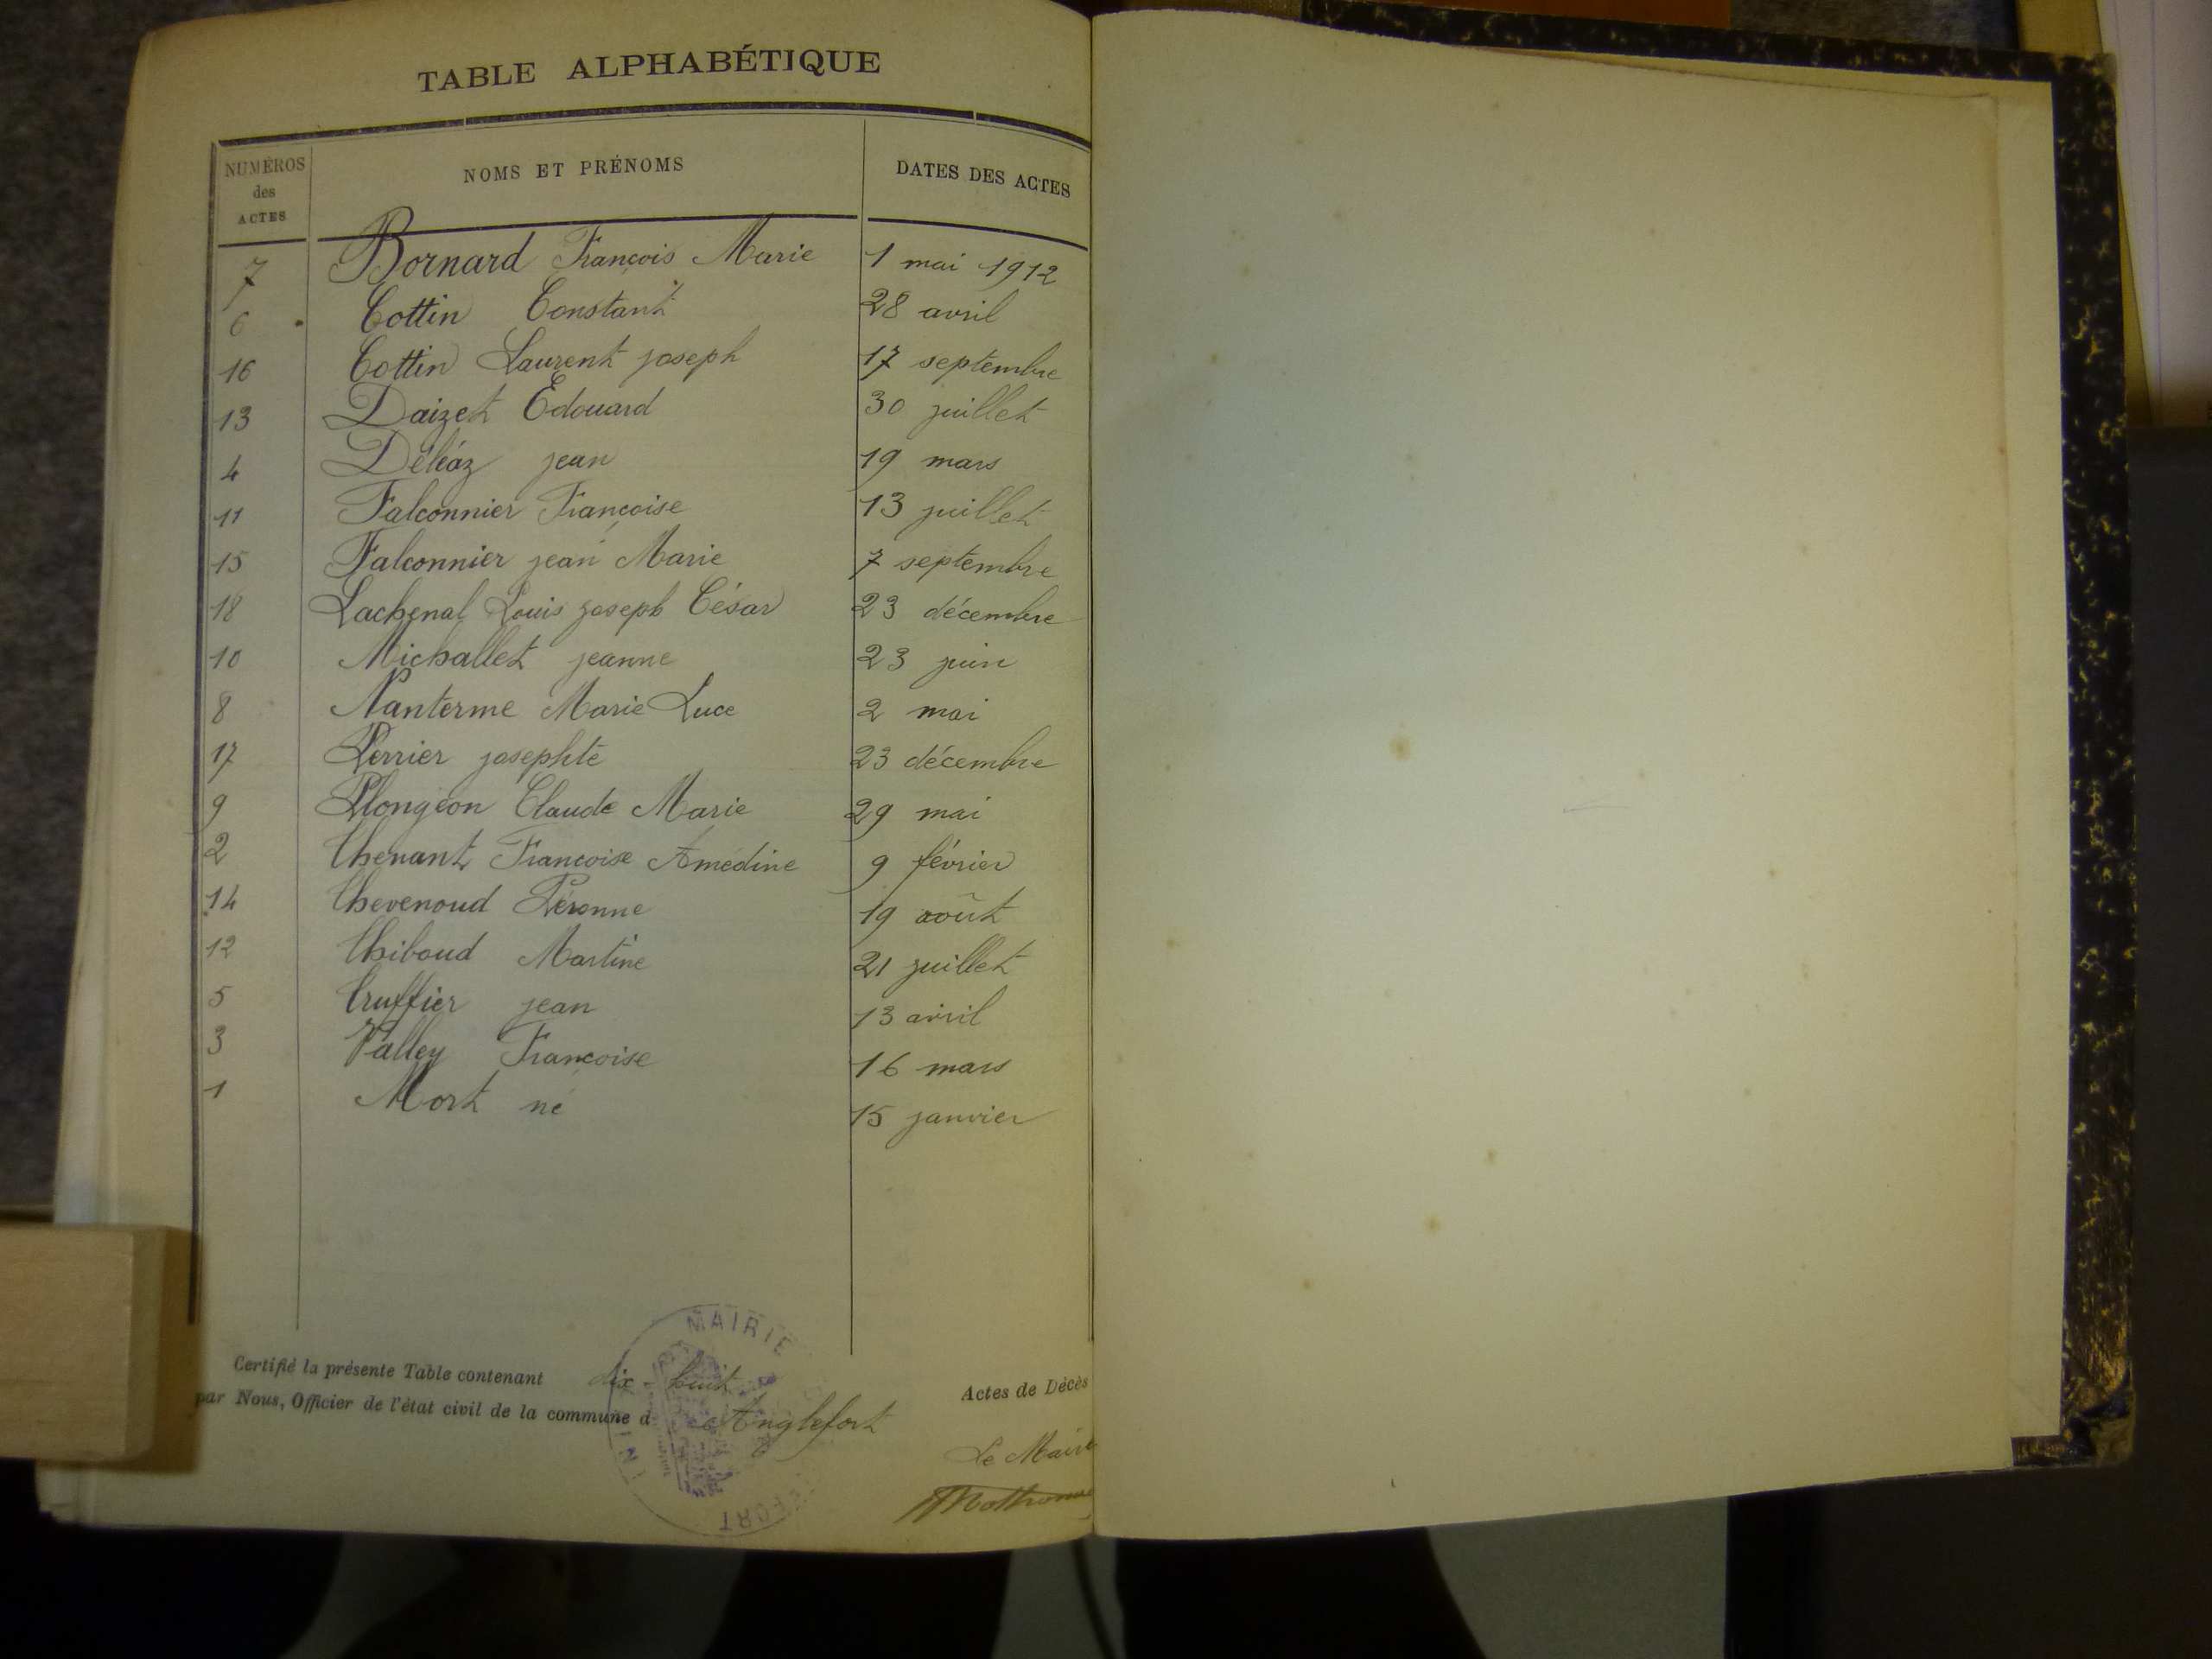 TABLE ALPHABÉTIQUE
NUMÉROS des ACTES NOMS ET PRÉNOMS DATES DES ACTES
7 Bornard François Marie 1 mai 1912
6 Cottin Constant 28 avril
16 Cottin Laurent joseph 17 septembre
13 Daizet Edouard 30 juillet
4 Déléaz jean 19 mars
11 Falconnier Françoise 13 juillet
15 Falconnier jean Marie 7 septembre
18 Lachenal Louis joseph César 23 décembre
10 Michallet jeanne 23 juin
8 Nanterme Marie Luce 2 mai
17 Perrier josephte 23 décembre
9 Plongeon Claude Marie 29 mai
2 Thenant Francoise Amédine 9 février
14 Thevenoud Péronne 19 août
12 Thiboud Martine 21 juillet
5 Truffier jean 13 avril
3 Valley Françoise 16 mars
1 Mort né 15 janvier
Certifié la présente Table contenant dix-huit Actes de Décès
par Nous, Officier de l'état civil de la commune d Anglefort
Le Maire
MAIRIE